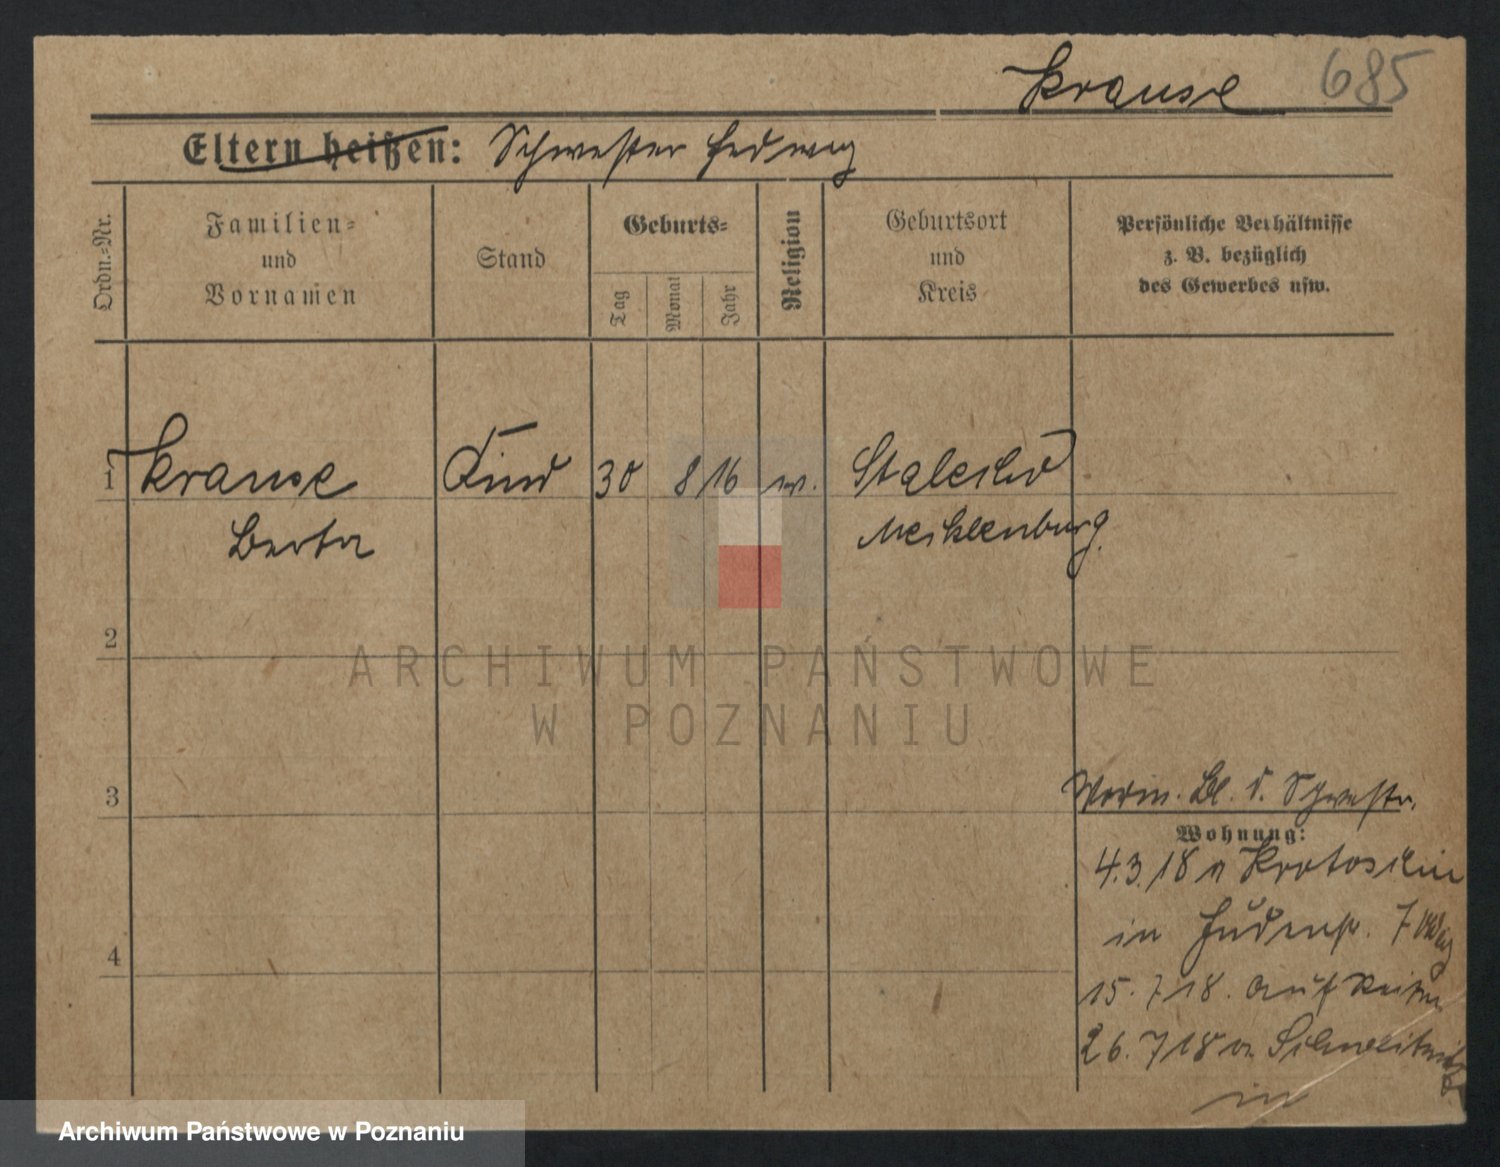 Krause 685
Eltern heißen: Schwester Hedwig
Ordn.-Nr.
Familien-
und
Vornamen
Stand
Geburts-
Tag
Monat
Jahr
Religion
Geburtsort
und
Kreis
Persönliche Verhältnisse
z. B. bezüglich
des Gewerbes usw.
1 Krause Kind 30 8 16
Berta Mecklenburg.
2
ARCHIWUM PAŃSTWOWE
W POZNANIU
3
Bl. d. Schwestr.
Wohnung:
4.3.18 a Krotoschin
in Judenstr. 7
4
15.7.18. auf Reisen
26.7.18 a
in
Archiwum Państwowe w Poznaniu